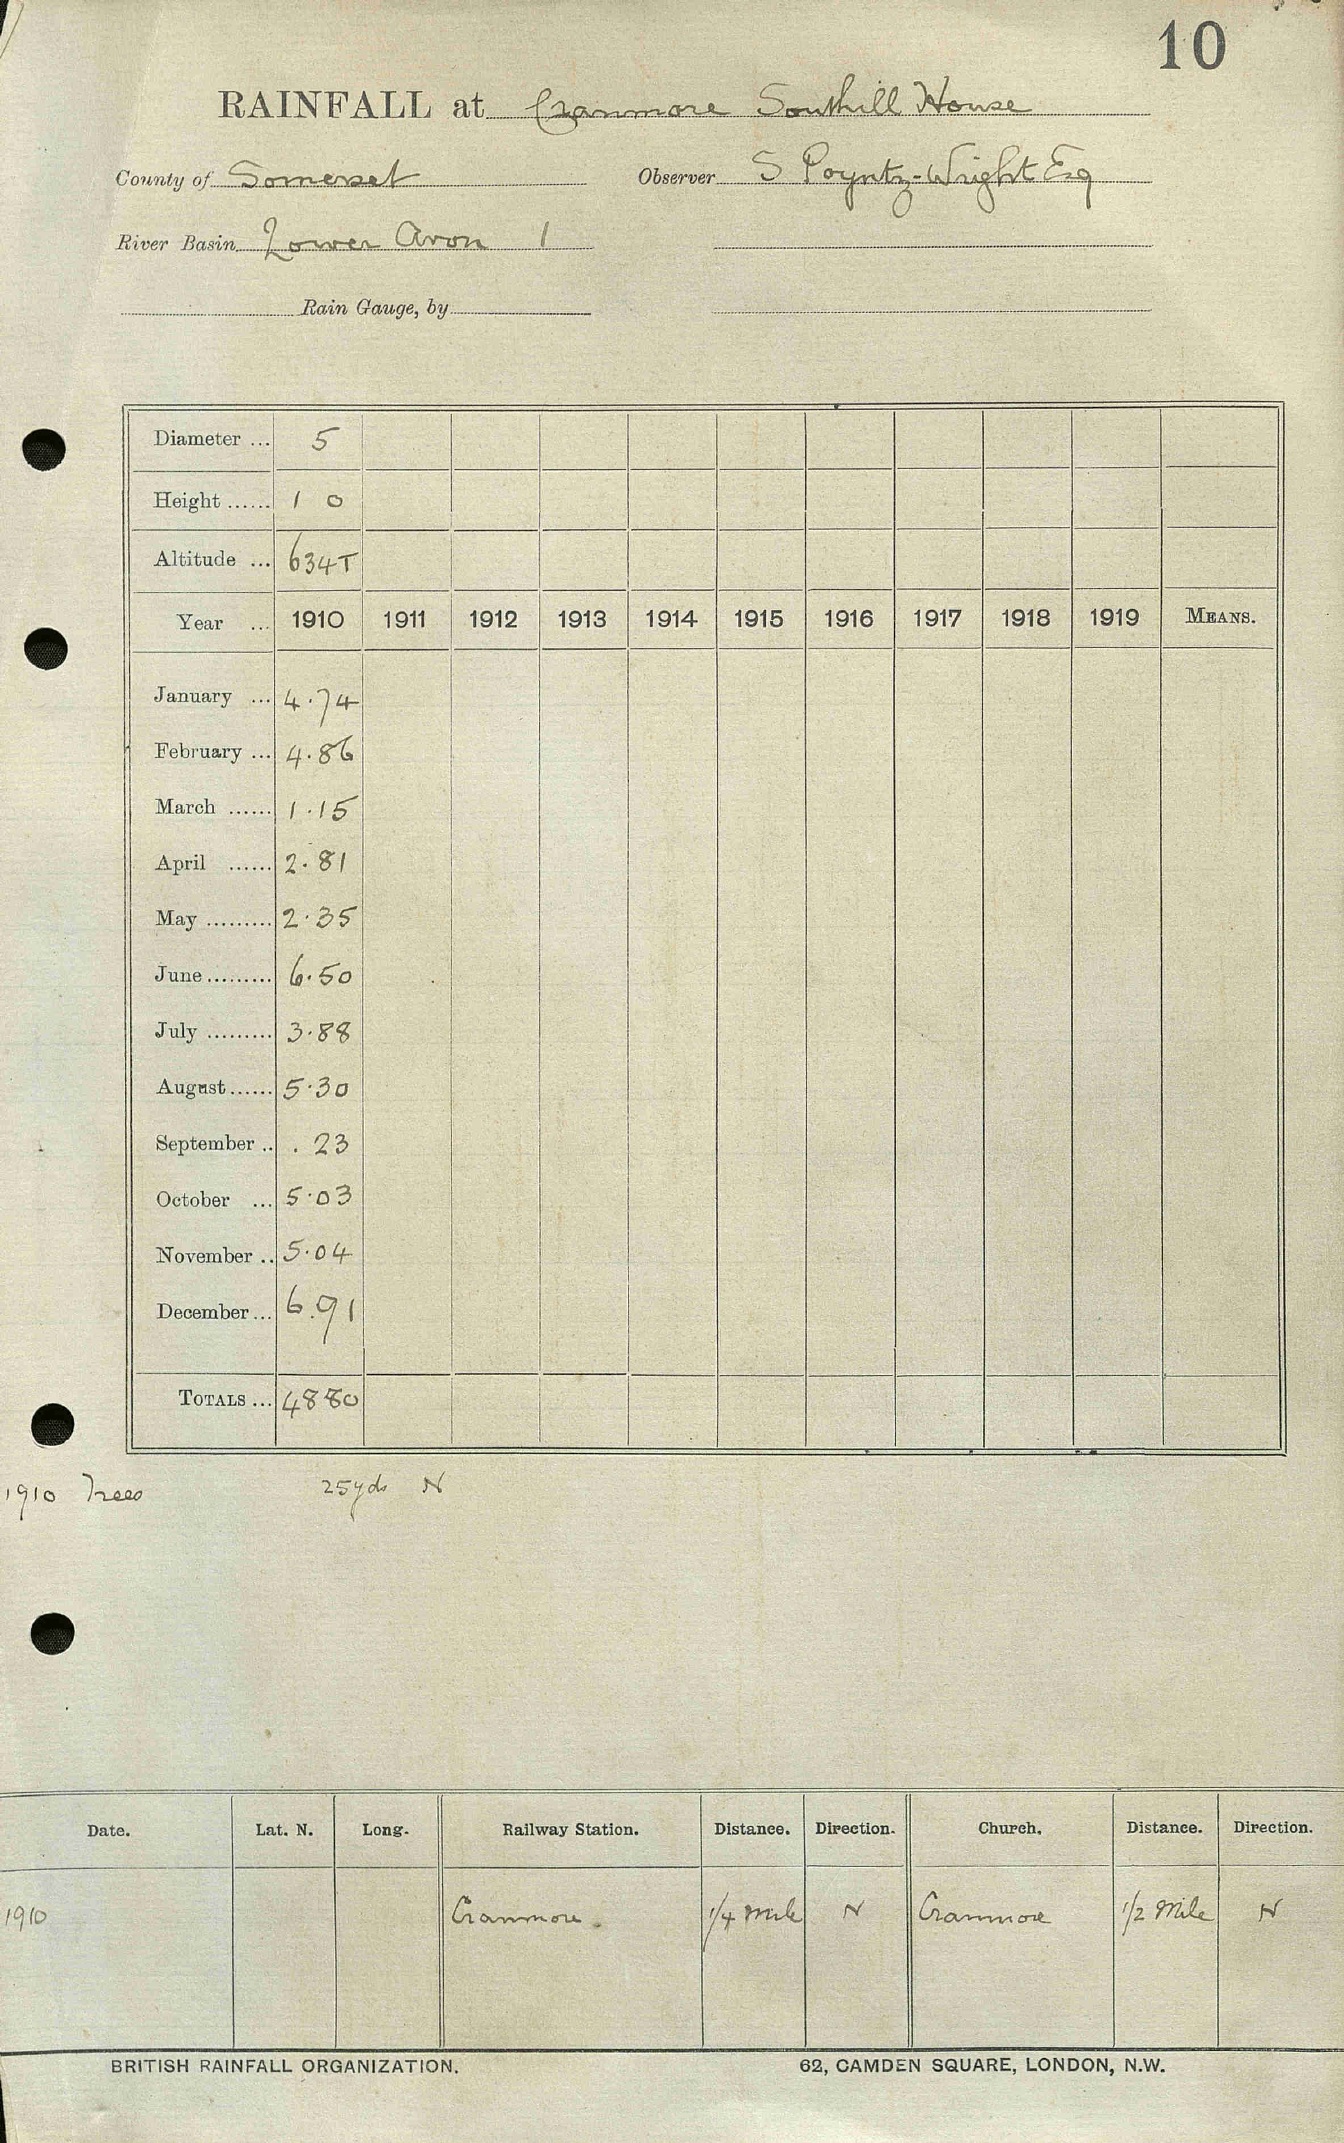 10
RAINFALL at Cranmore Southill House
County of Somerset Observer S Poyntz-Wright Esq
River Basin Lower Avon 1
Rain Gauge, by
Diameter ... 5
Height ...... 1 0
Altitude ... 634T
Year ... 1910 1911 1912 1913 1914 1915 1916 1917 1918 1919 MEANS.
January ... 4.74
February ... 4.86
March ...... 1.15
April ...... 2.81
May ......... 2.35
June ......... 6.50
July ......... 3.88
August ...... 5.30
September .. .23
October ... 5.03
November .. 5.04
December ... 6.91
TOTALS ... 4880
1910 Trees 25yds N
Date. Lat. N. Long. Railway Station. Distance. Direction. Church. Distance. Direction.
1910 Cranmore. 1/4 Mile N Cranmore 1/2 Mile N
BRITISH RAINFALL ORGANIZATION. 62, CAMDEN SQUARE, LONDON, N.W.